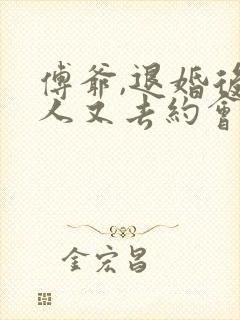 傅爺,退婚後
人又去約會
金宏昌